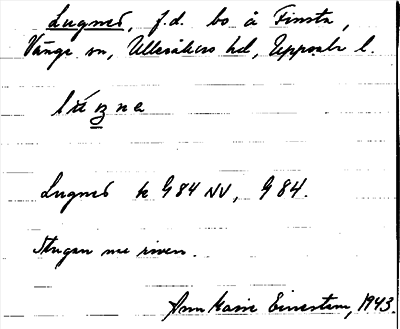 Lugnes, f.d. bo å Finsta,
Vänge sn, Ulleråkers hd, Uppsala l.
Lugnes k G84 NV, G 84.
Stugan nu riven.
Ann Karin Einerstam, 1943.